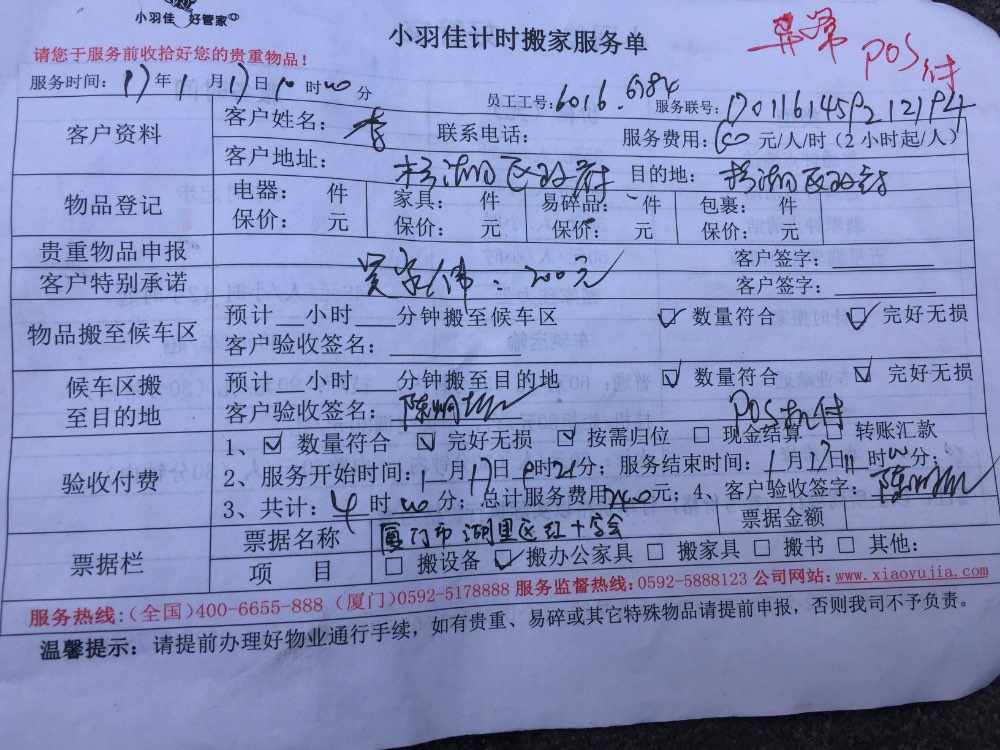 小羽佳 好管家
小羽佳计时搬家服务单
异常
POS付
请您于服务前收拾好您的贵重物品！
服务时间：17年1月17日10时00分
员工工号：6016.6784 服务联号：
客户资料
客户姓名：李 联系电话： 服务费用：60元/人/时（2小时起/人）
客户地址： 区政府 目的地： 区政府
物品登记
电器： 件 家具： 件 易碎品： 件 包裹： 件
保价： 元 保价： 元 保价： 元 保价： 元
贵重物品申报 客户签字：
客户特别承诺 ：200元 客户签字：
物品搬至候车区
预计 小时 分钟搬至候车区 ☑ 数量符合 ☑ 完好无损
客户验收签名：
候车区搬至目的地
预计 小时 分钟搬至目的地 ☑ 数量符合 ☑ 完好无损
客户验收签名：陈 POS机付
验收付费
1、☑ 数量符合 ☑ 完好无损 ☑ 按需归位 □ 现金结算 □ 转账汇款
2、服务开始时间：1月17日 时 分；服务结束时间：1月17日11时00分；
3、共计：4时00分；总计服务费用 元；4、客户验收签字：陈
票据栏
票据名称 厦门市湖里区红十字会 票据金额
项 目 □ 搬设备 ☑ 搬办公家具 □ 搬家具 □ 搬书 □ 其他：
服务热线:(全国)400-6655-888 (厦门)0592-5178888 服务监督热线:0592-5888123 公司网站:www.xiaoyujia.com
温馨提示：请提前办理好物业通行手续，如有贵重、易碎或其它特殊物品请提前申报，否则我司不予负责。